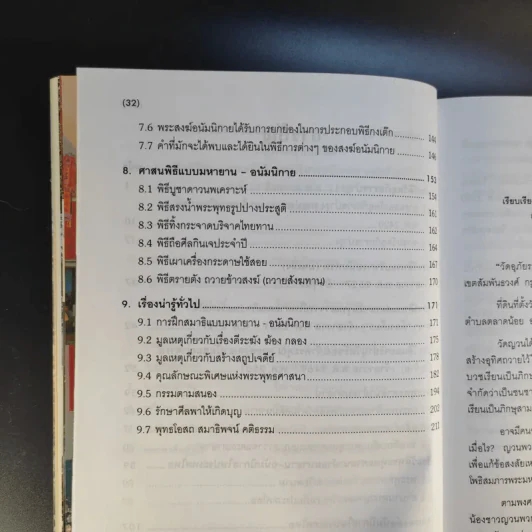 (32)
7.6 พระสงฆ์อนัมนิกายได้รับการยกย่องในการประกอบพิธีกงเต๊ก
7.7 คำที่มักจะได้พบและได้ยินในพิธีการต่างๆ ของสงฆ์อนัมนิกาย
8. ศาสนพิธีแบบมหายาน - อนัมนิกาย 151
8.1 พิธีบูชาดาวนพเคราะห์ 151
8.2 พิธีสรงน้ำพระพุทธรูปปางประสูติ 161
8.3 พิธีทิ้งกระจาดบริจาคไทยทาน 162
8.4 พิธีถือศีลกินเจประจำปี 164
8.5 พิธีเผาเครื่องกระดาษใช้สอย 167
8.6 พิธีตรายตัง ถวายข้าวสงฆ์ (ถวายสังฆทาน) 170
9. เรื่องน่ารู้ทั่วไป 171
9.1 การฝึกสมาธิแบบมหายาน - อนัมนิกาย 171
9.2 มูลเหตุเกี่ยวกับเรื่องตีระฆัง ฆ้อง กลอง 175
9.3 มูลเหตุเกี่ยวกับสร้างสถูปเจดีย์ 178
9.4 คุณลักษณะพิเศษแห่งพระพุทธศาสนา 182
9.5 กรรมตามสนอง 194
9.6 รักษาศีลพาให้เกิดบุญ 202
9.7 พุทธโอสถ สมาธิพจน์ คติธรรม 211
เรียบเรีย
"วัดอุภัยร
เขตสัมพันธวงศ์ กรุ
ที่ดินที่ตั้งวั
ตำบลตลาดน้อย
วัดญวนได้
สร้างอุทิศถวายไว้
บวชเรียนเป็นภิกษุ
จำกัดว่าเป็นชนชา
เรียนเป็นภิกษุสาม
อาจมีคน
เมื่อไร? ญวนพว
เพื่อแก้ข้อสงสัยเห
โพธิสมภารพระมห
ตามพงศ
น้องชาวญวนพวก